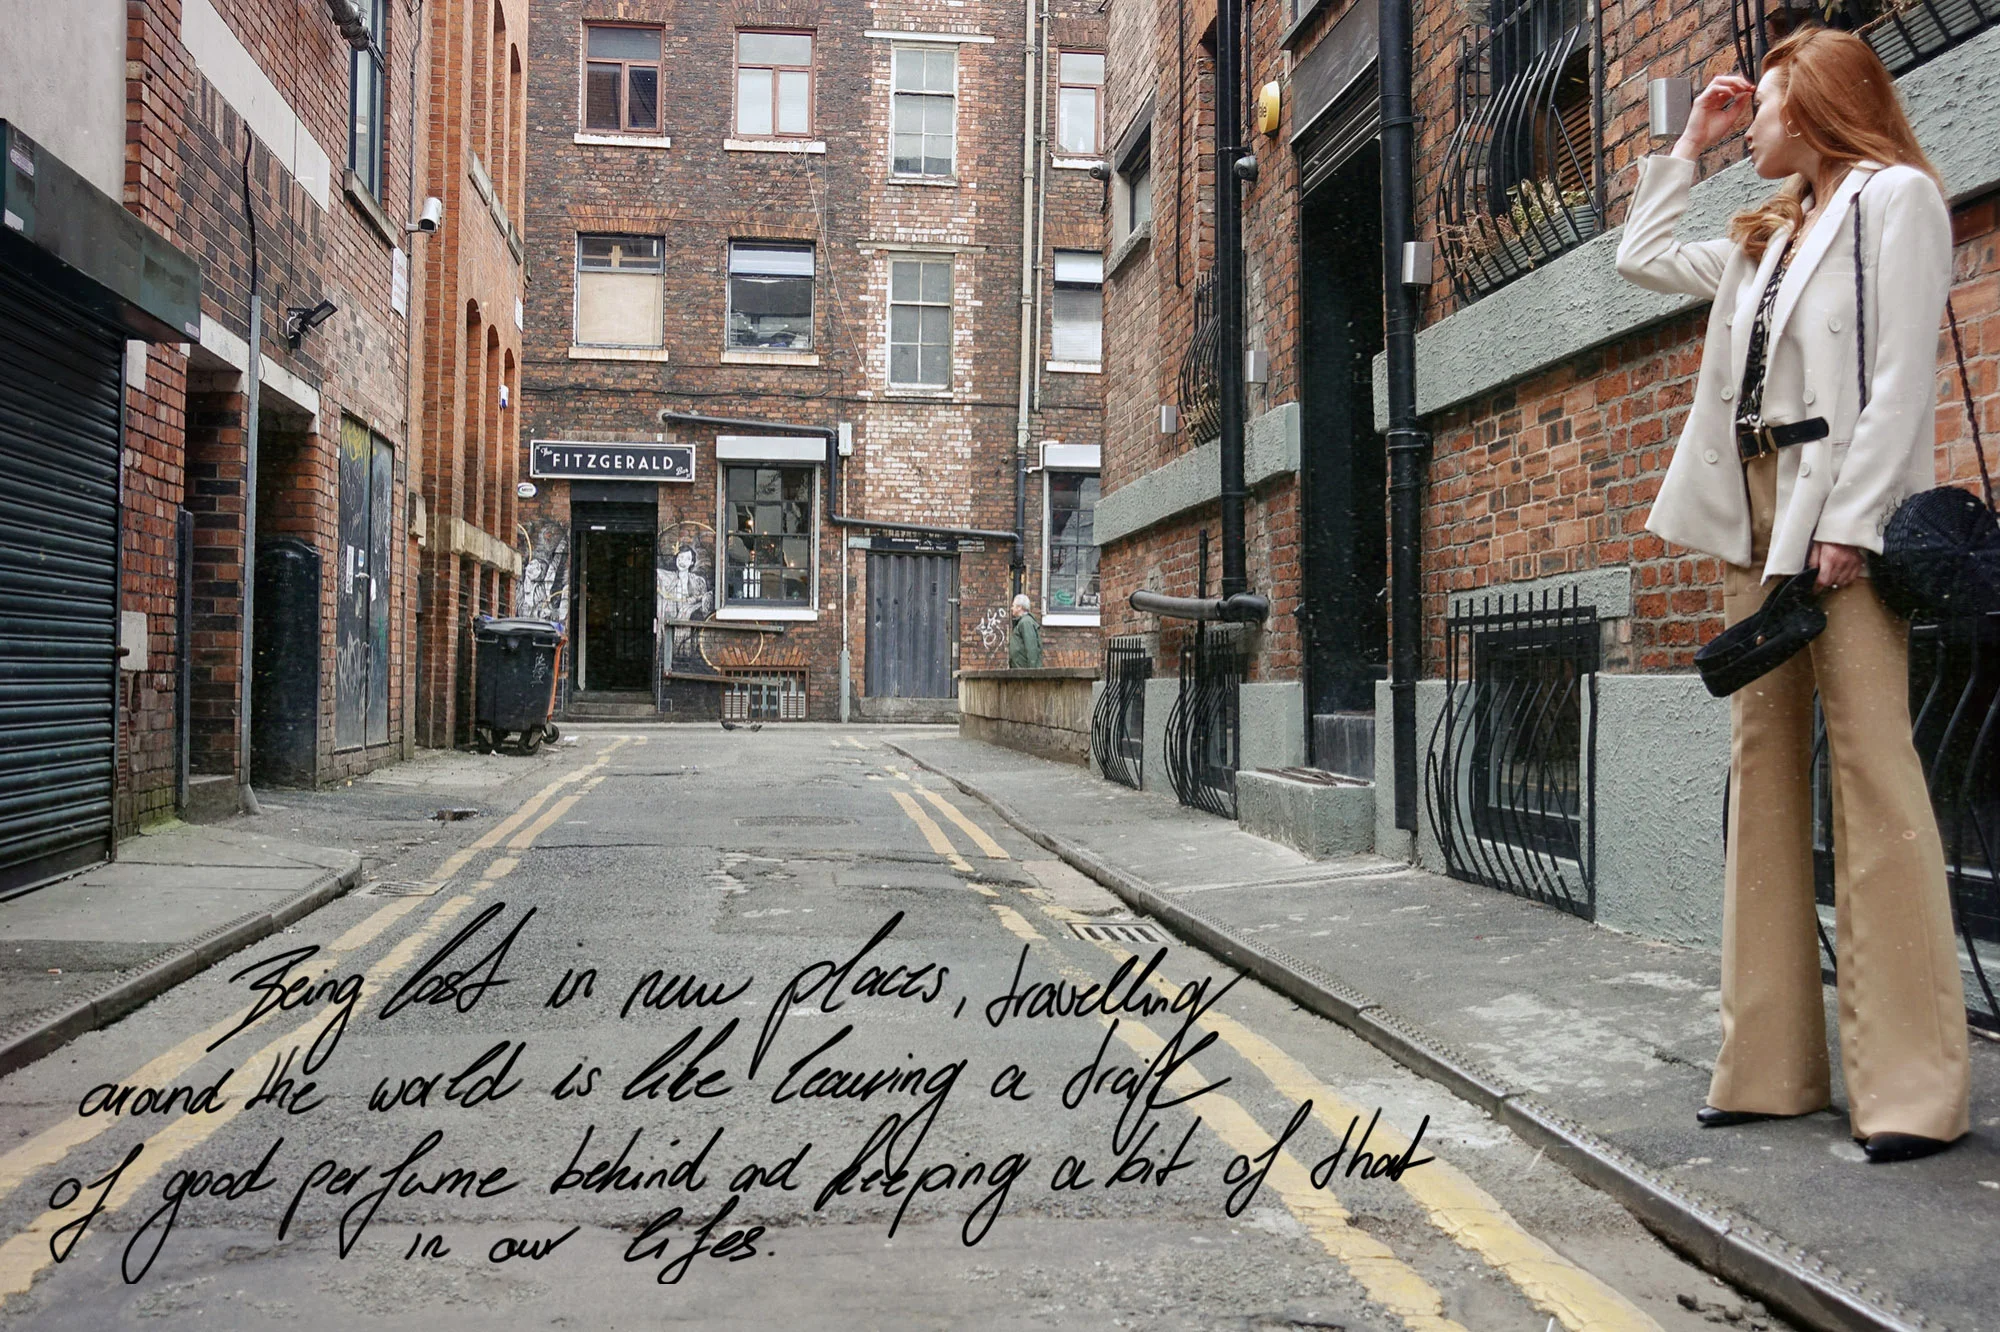 The FITZGERALD Bar
Being lost in new places, travelling
around the world is like leaving a trail
of good perfume behind and keeping a bit of that
in our lifes.